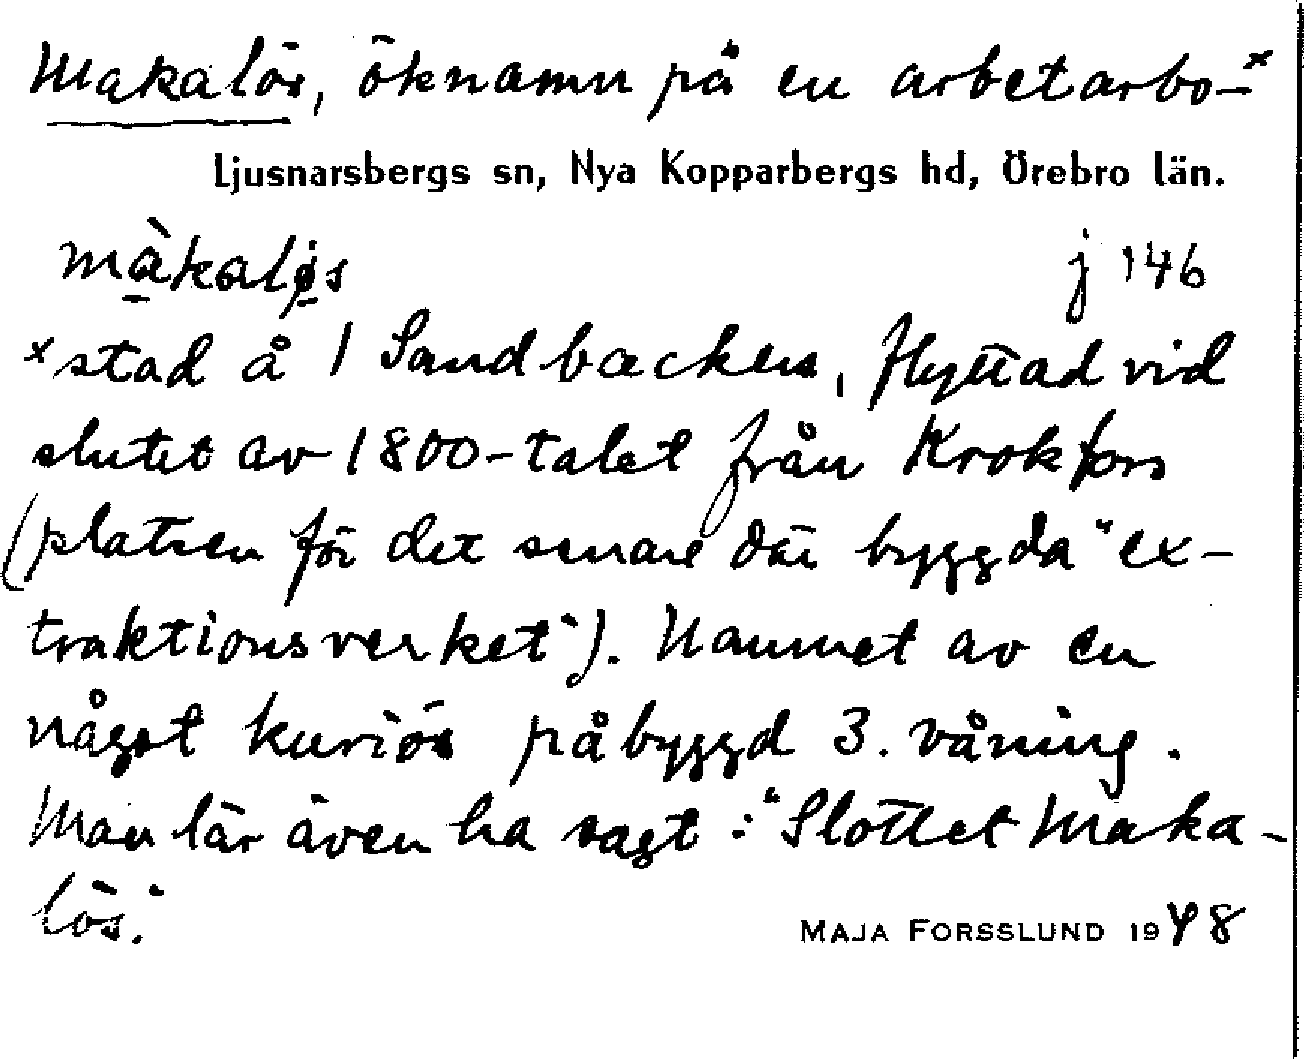 Makalös, öknamn på en arbetarbo-x
Ljusnarsbergs sn, Nya Kopparbergs hd, Örebro län.
màkaløs j 146
x stad å / Sandbacken, flyttad vid
slutet av 1800-talet från Krokfors
(platsen för det senare där byggda "ex-
traktionsverket"). Namnet av en
något kuriös påbyggd 3. våning.
Man lär även ha sagt: "Slottet Maka-
lös".
MAJA FORSSLUND 1948